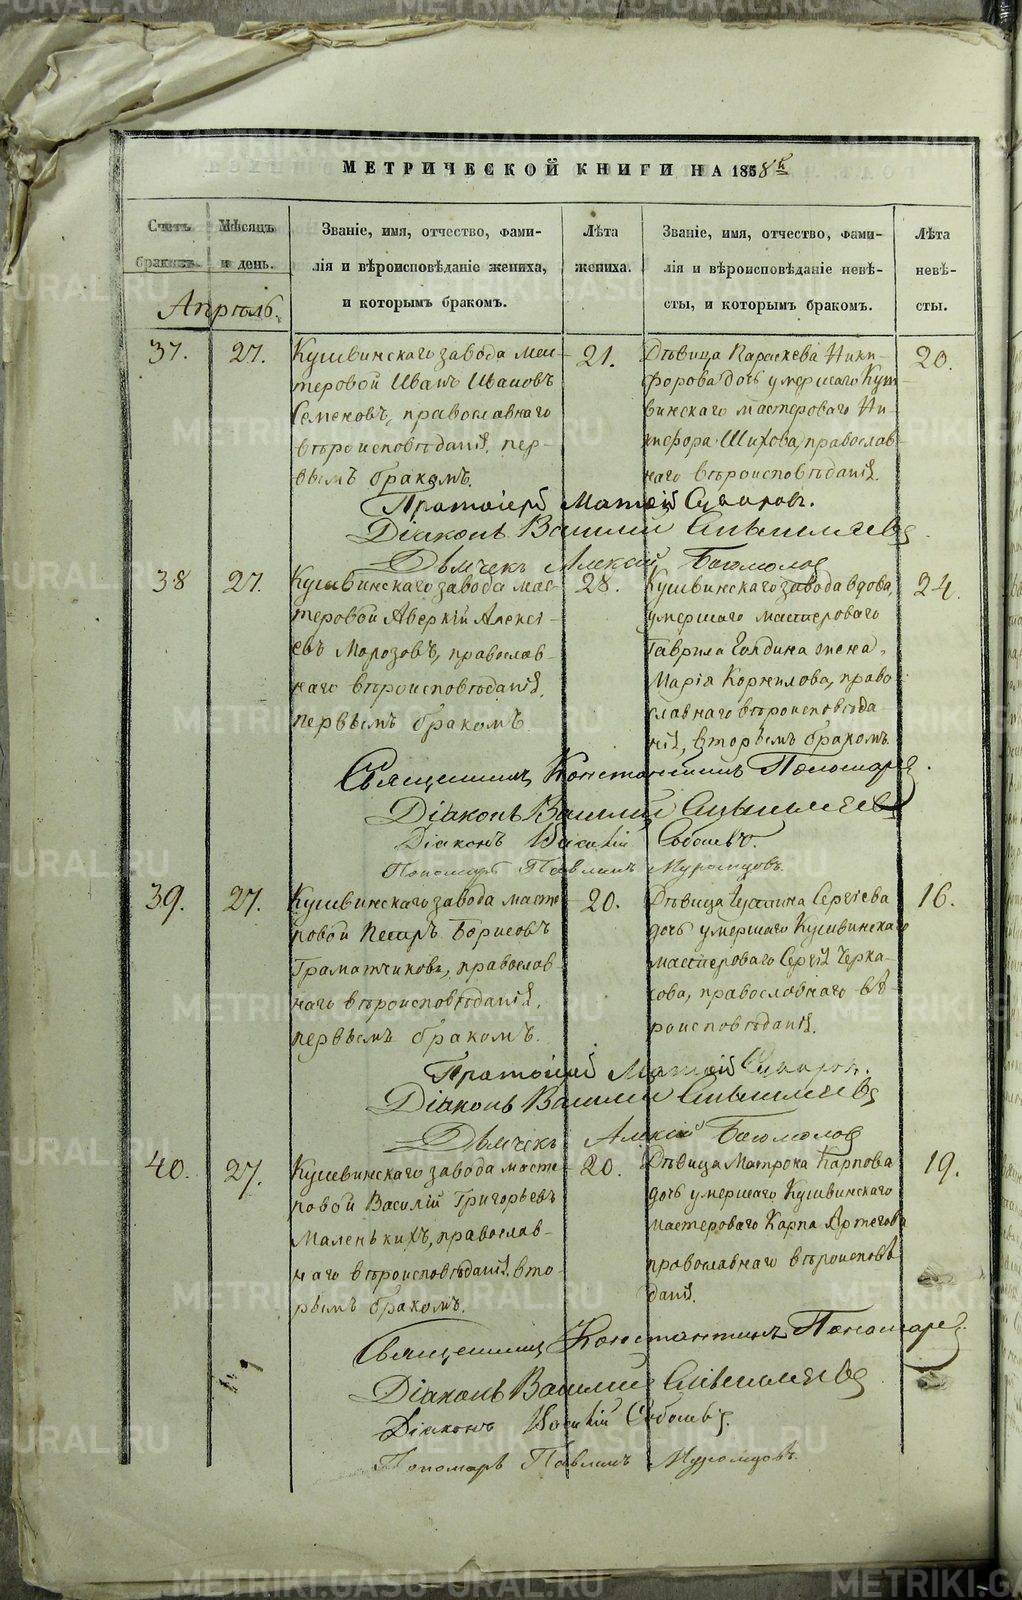 МЕТРИЧЕСКОЙ КНИГИ НА 1858й
Счетъ браковъ.
Мѣсяцъ и день.
Званіе, имя, отчество, фами-
лія и вѣроисповѣданіе жениха,
и которымъ бракомъ.
Лѣта
жениха.
Званіе, имя, отчество, фами-
лія и вѣроисповѣданіе невѣ-
сты, и которымъ бракомъ.
Лѣта
невѣ-
сты.
Апрѣль.
37.
27.
Кушвинскаго завода мас-
теровой Иванъ Ивановъ
Семеновъ, православнаго
вѣроисповѣданія, пер-
вымъ бракомъ.
21.
Дѣвица Параскева Ники-
форова дочь умершаго Куш-
винскаго мастероваго Ни-
кифора Шихова, православ-
наго вѣроисповѣданія.
20.
Протоіерей Матѳій
Діаконъ Василій
Дьячекъ Алексій Богомолов
38
27.
Кушвинскаго завода мас-
теровой Аверкій Алексѣ-
евъ Морозовъ, православ-
наго вѣроисповѣданія,
первымъ бракомъ
28.
Кушвинскаго завода вдова,
умершаго мастероваго
Гаврила жена,
Марія Корнилова, право
славнаго вѣроисповѣда-
нія, вторымъ бракомъ.
24.
Священникъ Константинъ Пономарев.
Діаконъ Василій
Діаконъ Василій
Пономарь Павлинъ Муромцовъ.
39.
27.
Кушвинскаго завода масте-
ровой Петръ Борисовъ
Граматчиковъ, православ-
наго вѣроисповѣданія,
первымъ бракомъ.
20.
Дѣвица Сергіева
дочь умершаго Кушвинскаго
мастероваго Сергія Черка-
сова, православнаго вѣ-
роисповѣданія.
16.
Протоіерей Матѳій
Діаконъ Василій
Дьячекъ Алексій Богомолов
40.
27.
Кушвинскаго завода масте-
ровой Василій Григорьевъ
Маленькихъ, православ-
наго вѣроисповѣданія, вто-
рымъ бракомъ.
20.
Дѣвица Матрона Карпова
дочь умершаго Кушвинскаго
мастероваго Карпа
православнаго вѣроисповѣ
данія.
19.
Священникъ Константинъ Пономарев.
Діаконъ Василій
Діаконъ Василій
Пономарь Павлинъ Муромцовъ.
METRIKI.GASO-URAL.RU